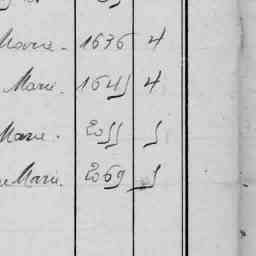 Marie. 1676 4
Marie. 1645 4
Marie. 2055 5
Marie. 2069 5